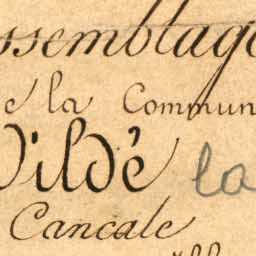 ssemblag
e la Commun
Vildé la
Cancale